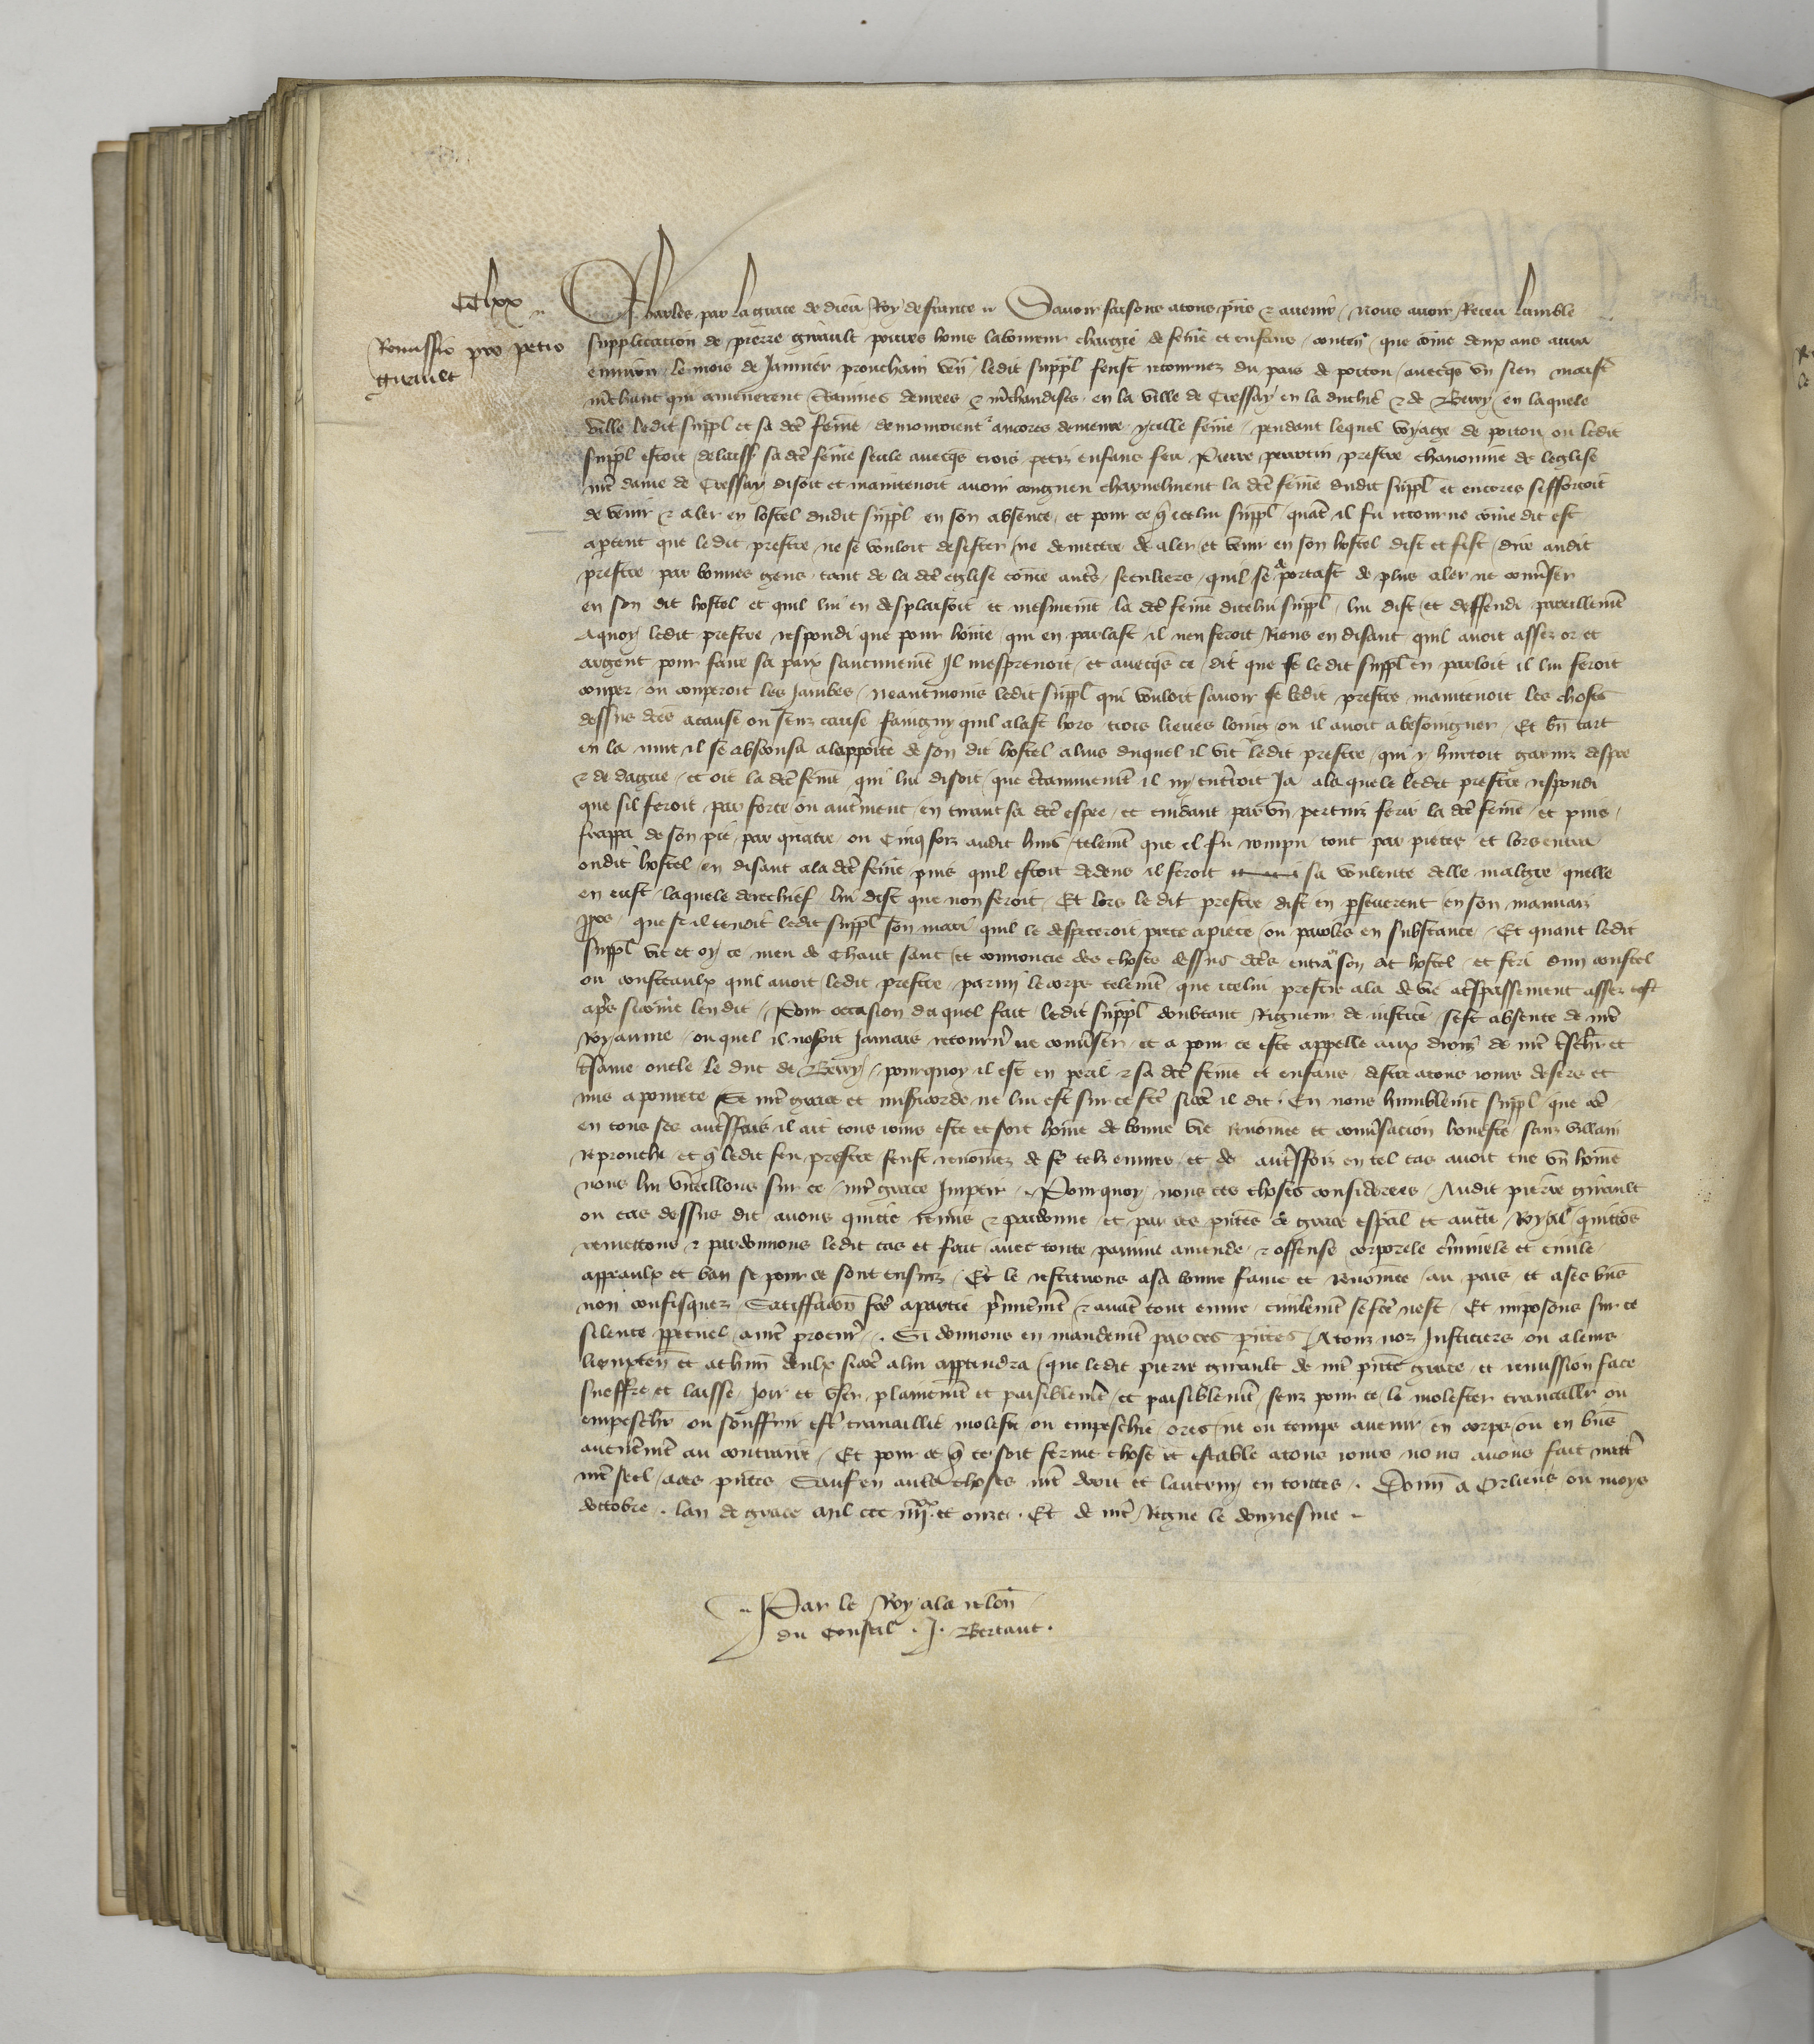 CClxx
Remissio pro petro
Girault
Charles par la grace de dieu Roy de france Savoir faisons a tous pñs et avenir nous avoir Receu lumble
supplicacion de pierre girault povres homs laboureur chargie de feme et enfans conteñ que cõme deux ans aura
environ le mois de Janvier prouchain veñ ledit suppl feust retournez du pais de poitou avecqs vn sien maist
mchant qui amenerent ctaines denrees et mchandises en la ville de Cressay en la duchie de Berry en laquele
ville ledit suppl et sa dce feme demouroient ancores demeure ycelle feme pendant lequel voyage de poitou ou ledit
suppl estoit delaisse sa dce feme seule avecqs trois petiz enfans feu Pierre perrotin prestre chanoinne de leglise
nre dame de Cressay disoit et maintenoit avoir congneu charnelment la dce feme dudit suppl et encores sefforcoit
de venir et aler en lostel dudit suppl en son absence et pour ce q icelui suppl quãt il fu retourne cõme dit est
aptent que ledit prestre ne se vouloit desister ne demettre de aler et venir en son hostel dist et fist dire audit
prestre par bonnes gens tant de la dce eglise cõme autres seculiers quil se deportast de plus aler ne conuser
en son dit hostel et quil lui en desplaisoit et mesmemt la dce feme dicelui suppl lui dist et deffendi pareillemt
Aquoy ledit prestre respondi que pour hõme qui en parlast il nen feroit Riens en disant quil avoit assez or et
argent pour faire sa paix Il mesprenoit et avecqs ce dit que se ledit suppl en parloit il lui feroit
couper ou couperoit les jambes neantmoins ledit suppl qui vouloit savoir se ledit prestre maintenoit les choses
dessus dces a cause ou senz cause faingny quil alast hors trois lieues loing ou il avoit a besoingner Et vñ tart
en la nuit il se absconsa de son dit hostel a luis duquel il vit ledit prestre qui y hurtoit garniz despee
et de dague et oit la dce feme qui lui disoit que ctainnemt il ny entroit Ja a laquele ledit prestre respondi
que sil feroit par force ou autrement en tirant sa dce espee et cuidant par vñ pertuiz ferir la dce feme et puis
frappa de son pie par quatre ou Cinq foiz audit huis telemt que el fu rompu tout par pieces et lors entra
oudit hostel en disant a la dce feme puis quil estoit dedens il feroit sa voulente delle maugre quelle
en eust laquele derechief lui dist que non feroit Et lors le dit prestre dist en pseverent en son mauvaiz
ppos que se il tenoit ledit suppl son mari quil le despeceroit piece a piece ou paroles en substance Et quant ledit
suppl vit et oy ce meu de chaut sanc et conroucie des choses dessus dces entra en son dit hostel et feri dun coustel
ou cousteaulx quil avoit ledit prestre parmi le corps telemt que icelui prestre ala de vie a trespassement assez tost
aps sicome len dit Pour occasion du quel fait ledit suppl doubtant Rigueur de justice sest absente de nre
Royaume ouquel il noseroit Jamais retournr ne conuser et a pour ce este appelle aux droiz de nre tschr et
tsame oncle le duc de Berry pourquoy il est en peril et sa dce feme et enfans destre a tous jours desers et
mis a povrete Se nre grace et misicorde ne lui est sur ce fce sicõe il dit En nous humblemt suppl que cõe
en tous ses autres faiz il ait tous jours este et soit hõme de bonne vie renõmee et conusacion honeste sanz villain
reprouche et q ledit feu prestre feust renõmez de fe telz euvres et de autreffoiz en tel cas avoit tue vñ hõme
nous lui vueillons sur ce nre grace Impartir Pourquoy nous ces choses considerees Audit pierre girault
ou cas dessus dit avons quicte remis et pardonne et par ces pñtes de grace espal et aucte Royal quictõs
remettons et pardonnons ledit cas et fait avec toute painne amende et offense corporele criminele et civile
appeaulx et ban se pour ce sont ensuiz Et le restituons a sa bonne fame et renõmee au pais et a ses biens
non confisquez Satiffacon fce a partie prmieremt et avãt tout euvre civilemt se fce nest Et imposons sur ce
silence ppetuel a nre procur Si donnons en mandemt par ces pñtes A touz noz Justiciers ou a leurs
lieuxten et a chun deulx sicõe a lui appartendra que ledit pierre girault de nre pñte grace et remission face
sueffre et laisse Joir et user plainemt et paisiblemt et paisiblemt senz pour ce le molester travaillr ou
empeschr ou souffrir estr travaillie moleste ou empeschie ores ne ou temps avenir en corps ou en biens
aucunemt au contraire Et pour ce q ce soit ferme chose et estable a tous jours nous avons fait mettr
nre seel a ces pñtes Sauf en autres choses nre droit et lautruy en toutes Donne a Orliens ou moys
doctobre lan de grace mil ccc iiii xx et onze Et de nre Regne le douziesme
Par le Roy a la relon
du Conseil J. Bertaut